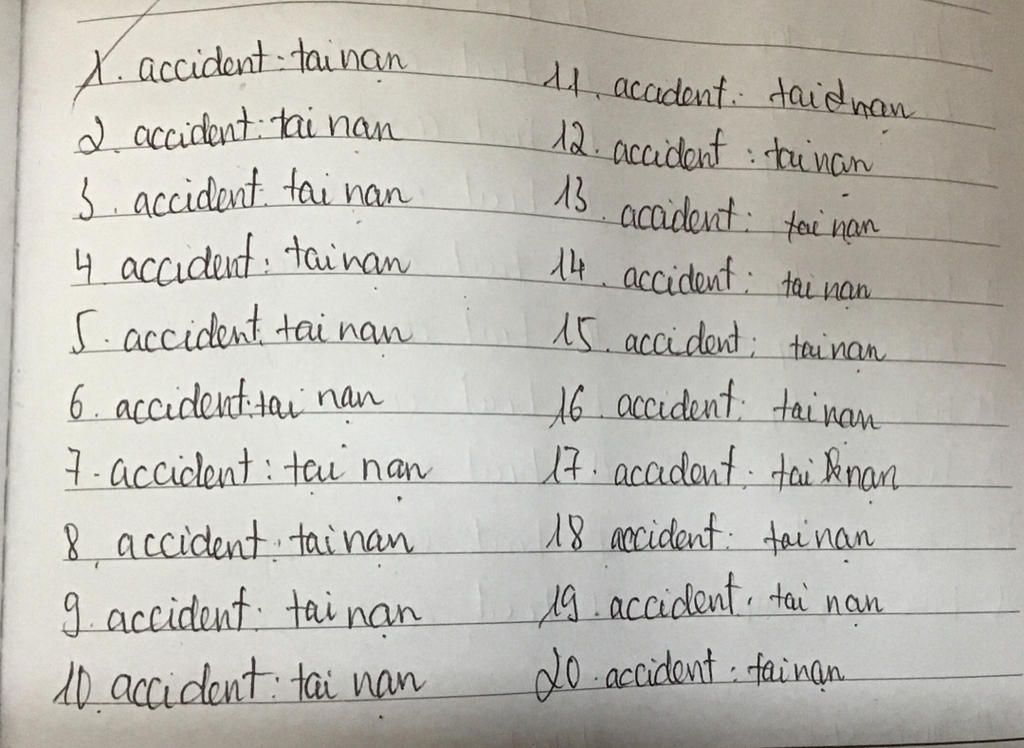 1. accident: tai nạn
2. accident: tai nạn
3. accident: tai nạn
4 accident: tai nạn
5. accident: tai nạn
6. accident: tai nạn
7. accident: tai nạn
8. accident: tai nạn
9. accident: tai nạn
10. accident: tai nạn
11. accident: tai nạn
12. accident: tai nạn
13. accident: tai nạn
14. accident: tai nạn
15. accident: tai nạn
16. accident: tai nạn
17. accident: tai nạn
18 accident: tai nạn
19. accident: tai nạn
20. accident: tai nạn